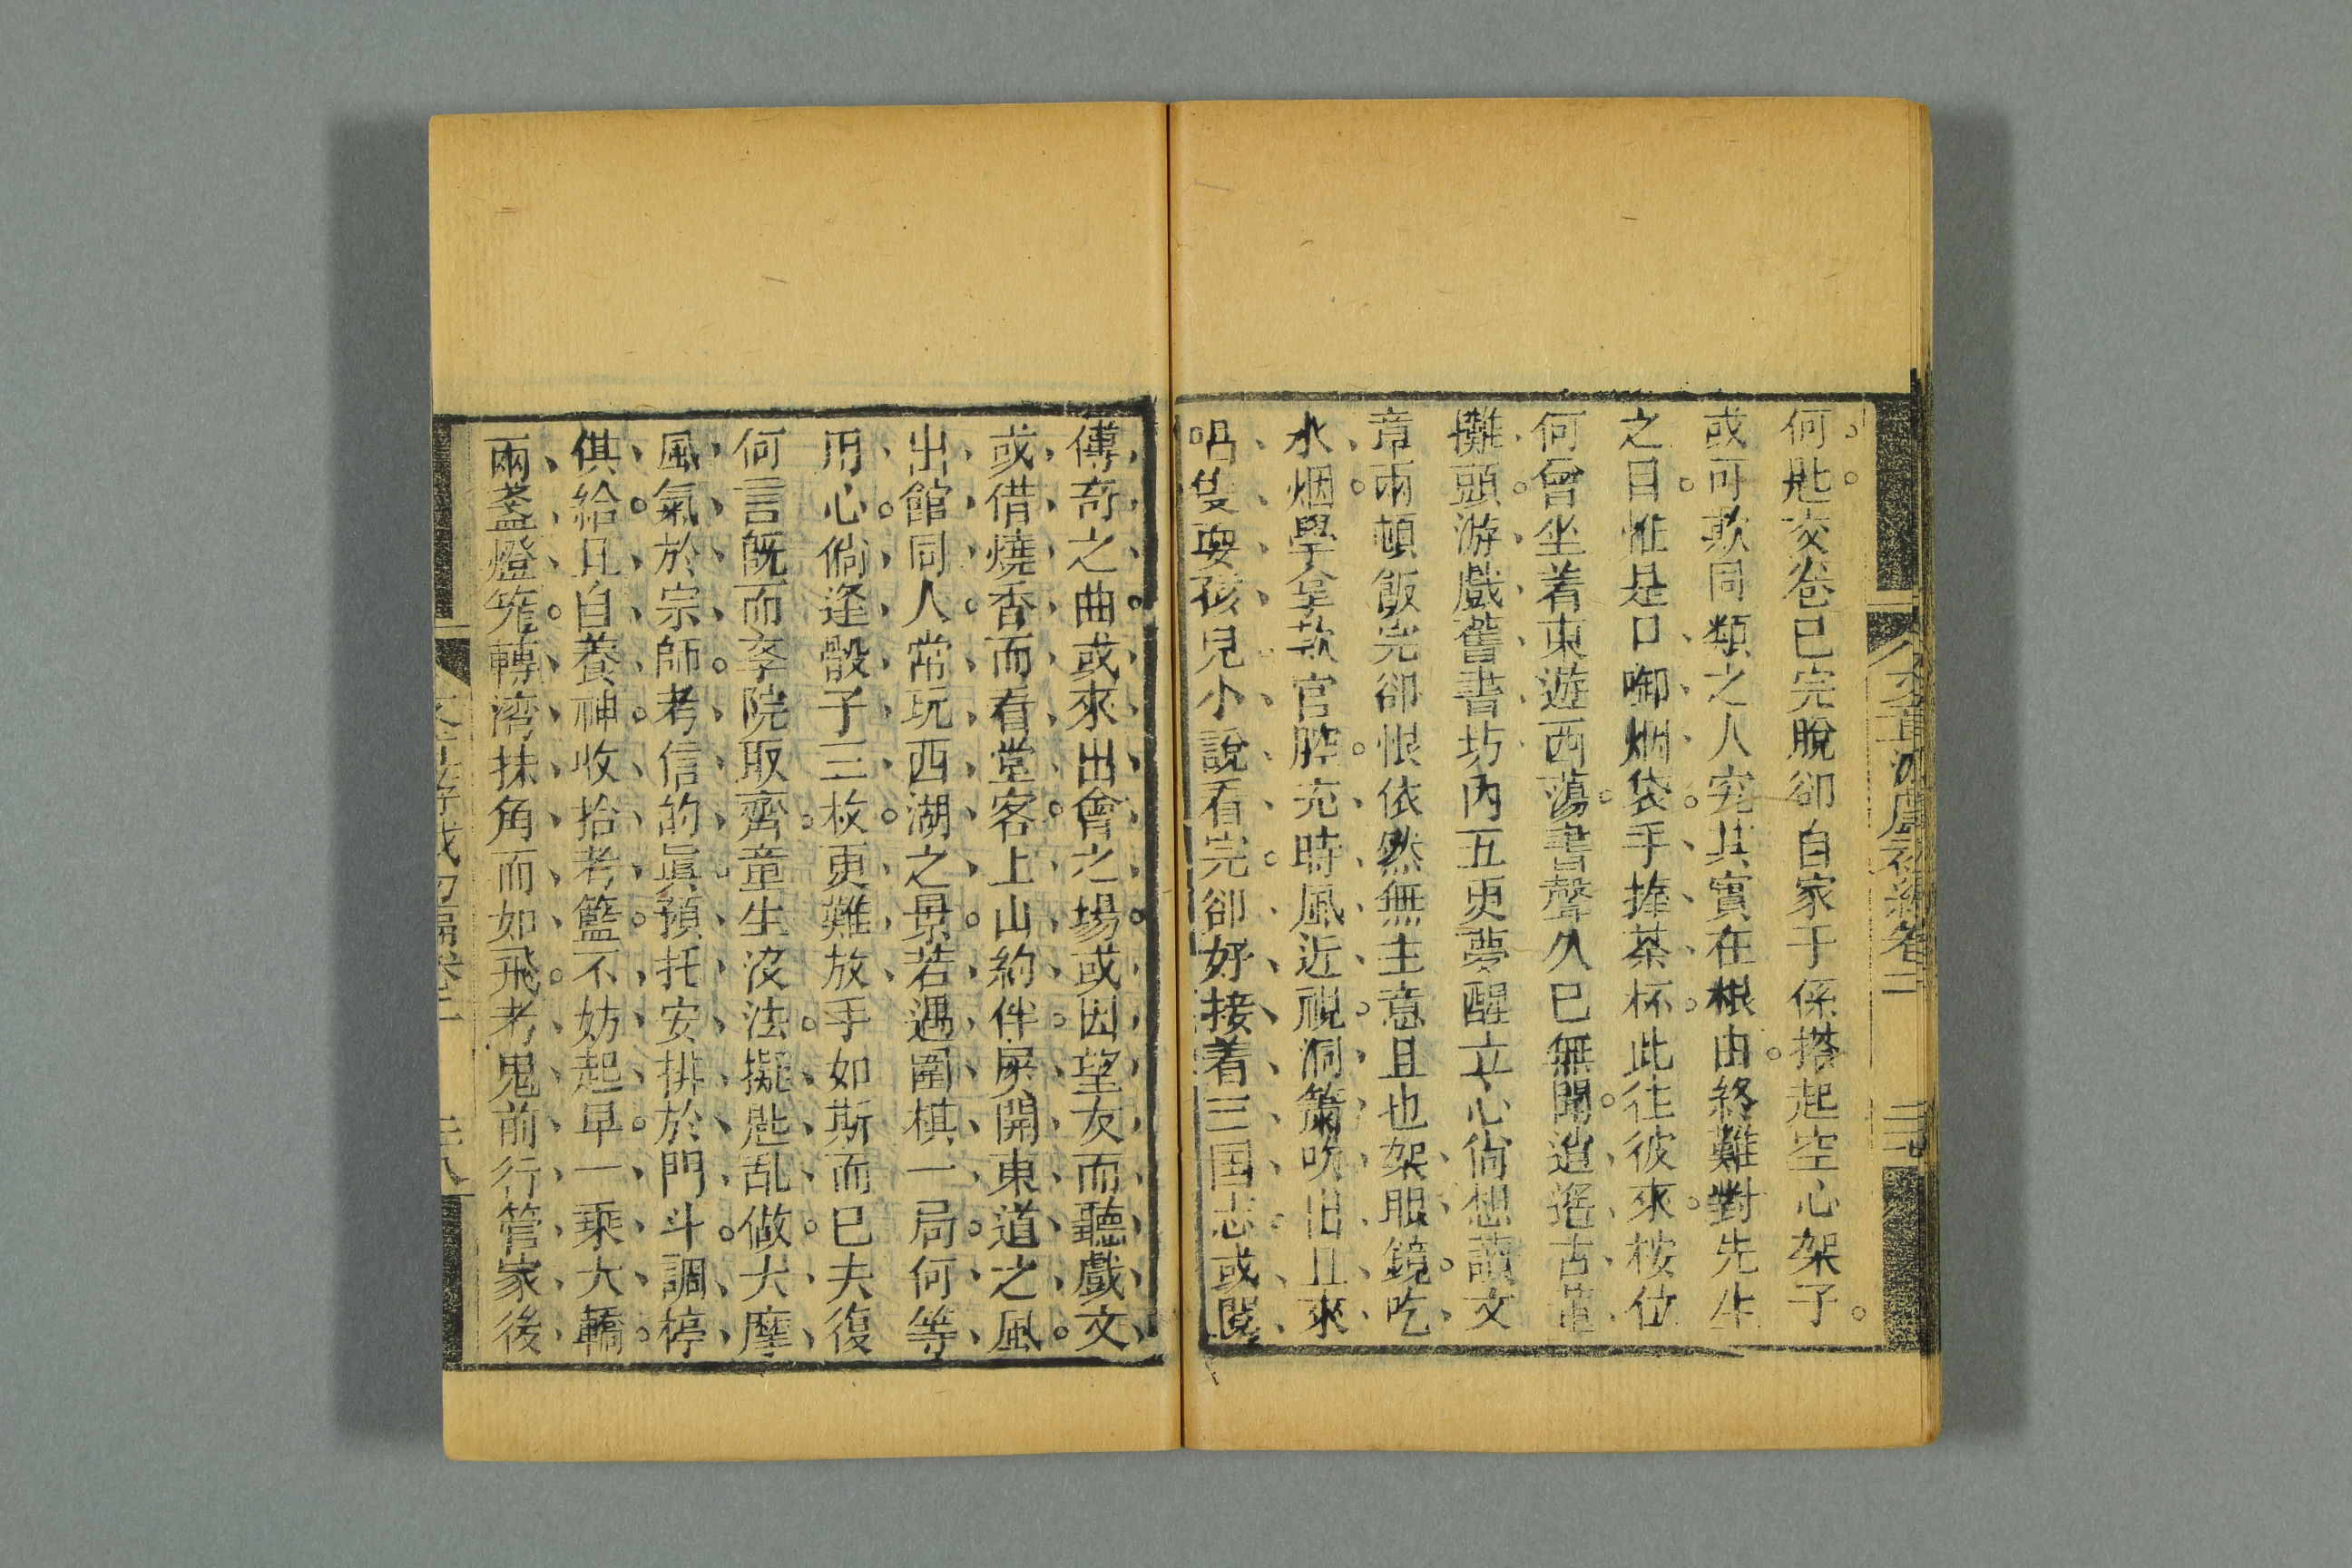 何。匙。交卷已完脫卻自家于係搭起空心架子。
或可欺同類之人究其實在根由。終難對先生
之目。惟是口啣烟袋。手捧茶杯。此往彼來。桉位
何曾坐着東遊西蕩。書聲久已無聞。逍遙古董
攤頭。游戲舊書坊內五更夢醒立心倘想讀文
章兩頓飯完卻恨依然無主意且也架眼鏡。吃
水烟。學拿款官腔。充時風近視。洞簫吹出且來
唱隻耍孩兒小說看完。卻好接着三国志。或閱
傳奇之曲。或來出會之場。或因望友而聽戲文
或借燒香而看堂客。上山約伴。屎開東道之風。
出館同人。常玩西湖之景。若遇圍棋一局。何等
用心。倘逢骰子三枚。更難放手如斯而已夫復
何言旣而李院取齊。童生沒法。擬匙乱做。大摩
風氣於宗師。考信的眞。預托安排於門斗。調停
供給。且自養神。收拾考籃。不妨起早。一乘大轎。
兩盞燈篭。轉湾抹角而如飛。考鬼前行管家後